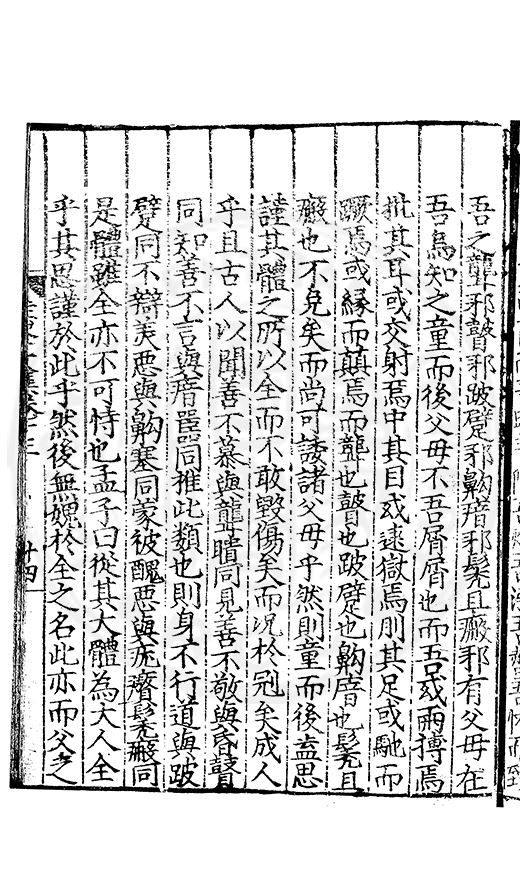 吾之聾邪瞽邪跛躄邪鼽瘖邪髡且廢邪有父母在
吾烏知之童而後父母不吾屑屑也而吾或兩摶焉
批其耳或交射焉中其目或速獄焉刖其足或馳而
蹶焉或緣而顛焉而聾也瞽也跛躄也鼽瘖也髡且
癈也不免矣而尚可諉諸父母乎然則童而後盍思
謹其體之所以全而不敢毀傷矣而況於冠矣成人
乎且古人以聞善不慕與聾聵同見善不敬與昏瞽
同知善不言與瘖嚚同推此類也則身不行道與跛
躄同不辯美惡與鼽塞同蒙被醜惡與疕癠髡癈同
是體雖全亦不可恃也孟子曰從其大體為大人全
乎其思謹於此乎然後無媿於全之名此亦而父之
十四